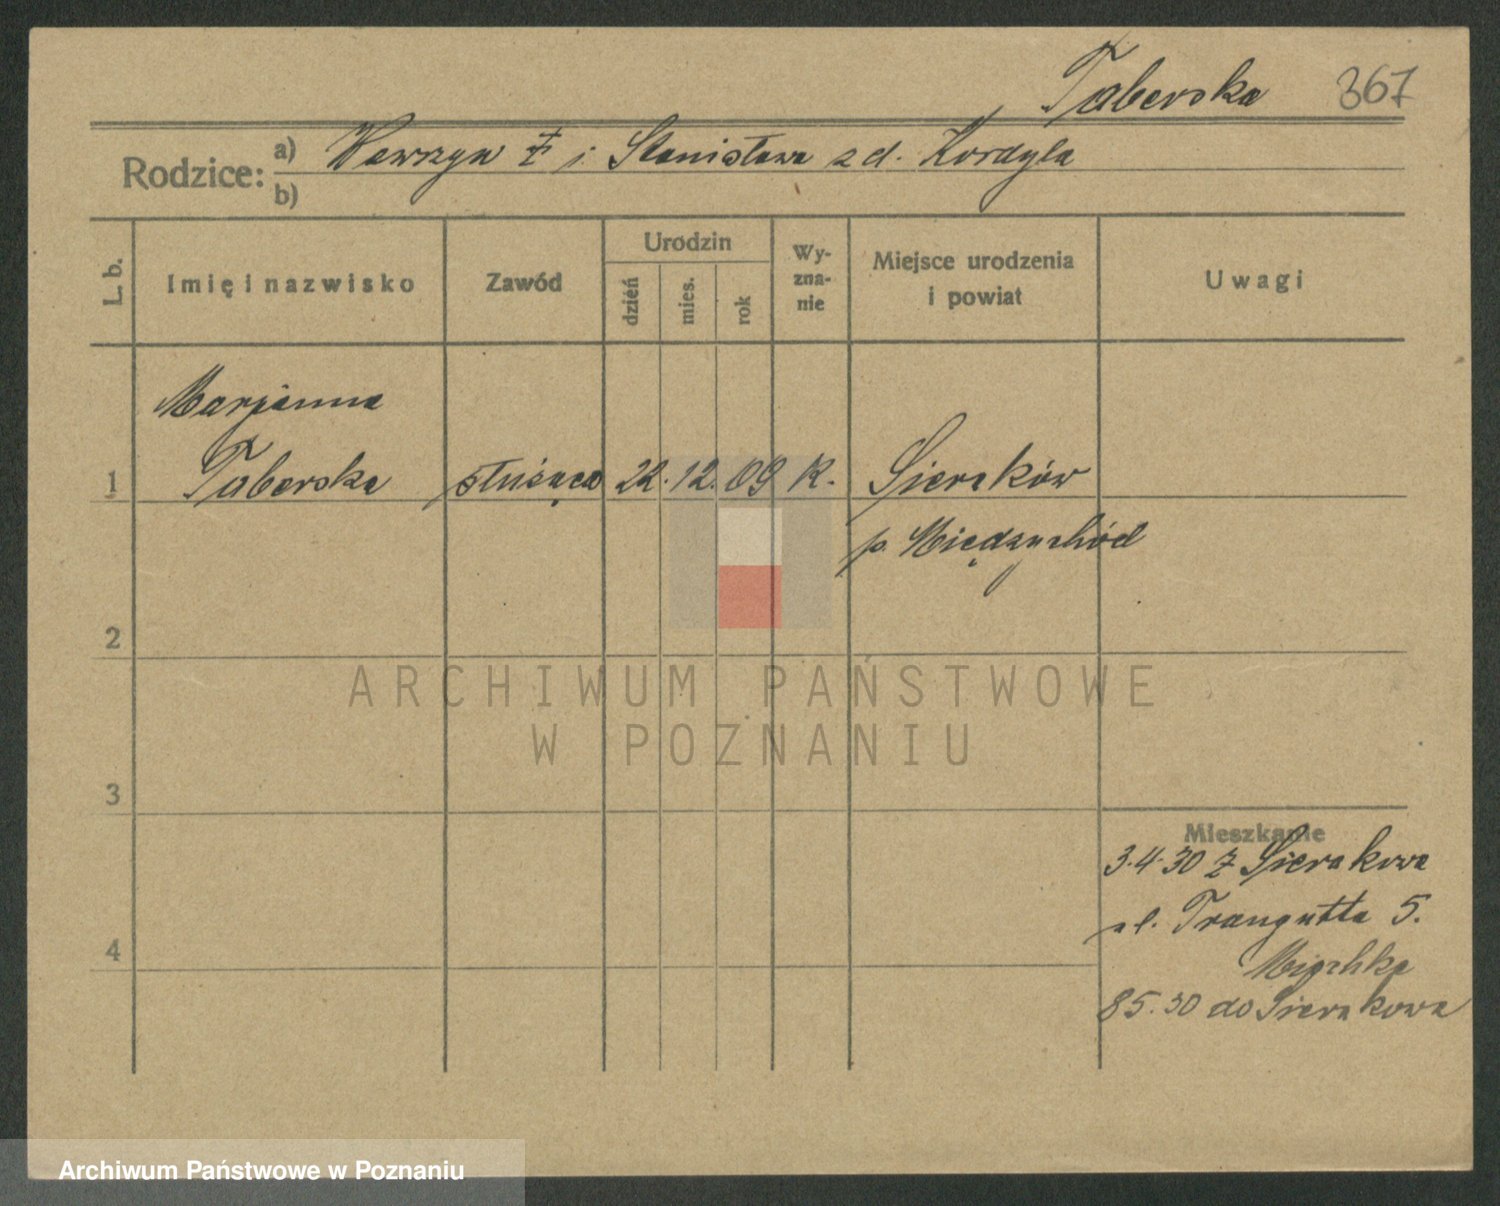 Taberska 367
Rodzice: a) Wawrzyn i Stanisława z d. Kordyla
b)
L. b. Imię i nazwisko Zawód Urodzin dzień mies. rok Wy-zna-nie Miejsce urodzenia i powiat Uwagi
Marjanna
1 Taberska służąca 22. 12. 09 K. Sieraków
p. Międzychód
2
3
Mieszkanie
3.4.30 z Sierakowa
ul. Traugutta 5.
4
8.5.30 do Sierakowa
ARCHIWUM PAŃSTWOWE
W POZNANIU
Archiwum Państwowe w Poznaniu